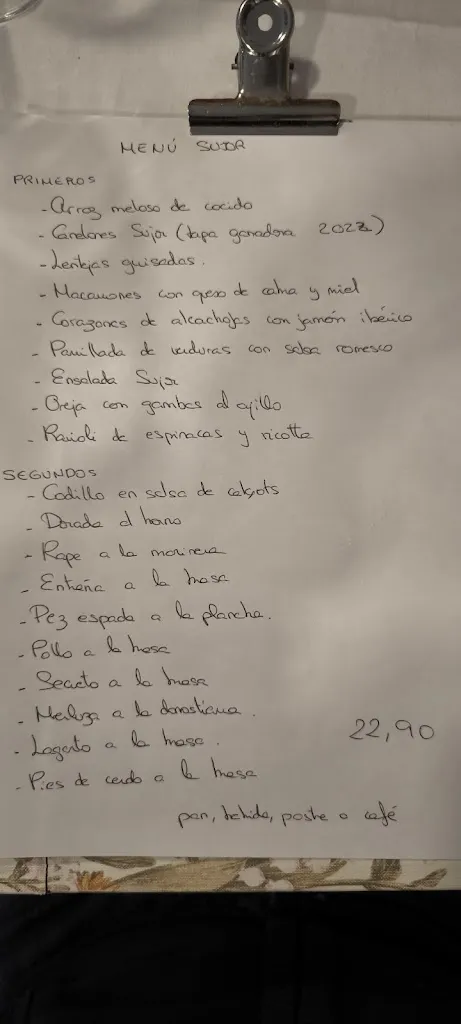 MENÚ SUJOR
PRIMEROS
- Arroz meloso de cocido
- Canelones Sujor (tapa ganadora 2022)
- Lentejas guisadas.
- Macarrones con queso de cabra y miel
- Corazones de alcachofas con jamón ibérico
- Parrillada de verduras con salsa romesco
- Ensalada Sujor
- Oreja con gambas al ajillo
- Ravioli de espinacas y ricotta
SEGUNDOS
- Codillo en salsa de calçots
- Dorada al horno
- Rape a la marinera
- Entraña a la brasa
- Pez espada a la plancha.
- Pollo a la brasa
- Secreto a la brasa
- Merluza a la donostiarra.
- Lagarto a la brasa.
22,90
- Pies de cerdo a la brasa
pan, bebida, postre o café